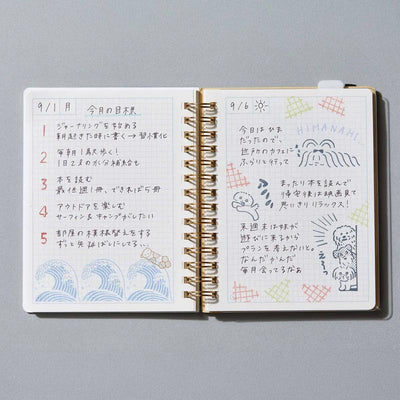 9/1 月
今月の目標
1 ジャーナリングを始める
朝起きた時に書く→習慣化
2 毎朝1駅歩く!
1日2Lの水分補給も
3 本を読む
最低週1冊、できれば5冊
4 アウトドアを楽しむ
サーフィン&キャンプがしたい
5 部屋の模様替えをする
ずっと先延ばしにしてる…
9/6
HIMANAHI
今日はひま
だったので、
近所のカフェに
ふらりと行って
まったり本を読んで
帰宅後は映画見て
思いきりリラックス!
来週末は妹が
遊びに来るから
プランを考えないと。
なんだかんだ
毎月会ってるなぁ